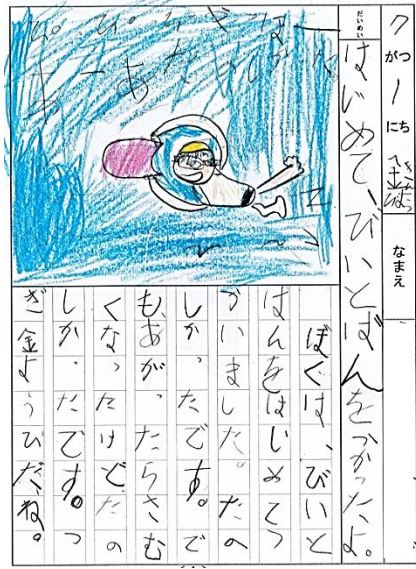 7がつ1にち
なまえ
だいめい
はじめて、びいとばんをつかったよ。
ぼくは、びいと
ばんをはじめてつ
かいました。たの
しかったです。で
もあがったらさむ
くなったけどたの
しかったです。つ
ぎ金ようびだね。